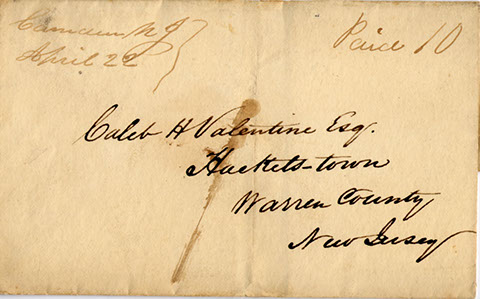 Camden NJ
April 22
Paid 10
Caleb H Valentine Esq.
Hackets-town
Warren County
New Jersey